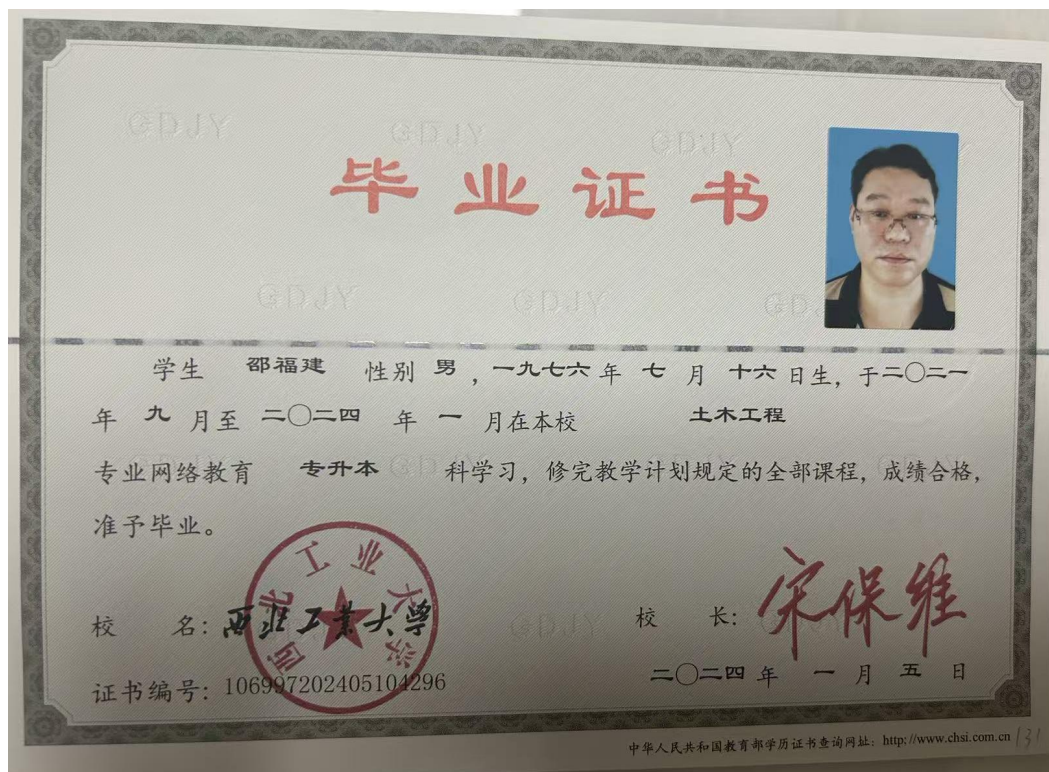 GDJY GDJY GDJY
毕业证书
GDJY GDJY GDJY
学生 邵福建 性别 男,一九七六年 七 月 十六日生,于二〇二一
年 九 月至 二〇二四 年 一 月在本校 土木工程
专业网络教育 专升本 科学习,修完教学计划规定的全部课程,成绩合格,
准予毕业。
西北工业大学
校 名:西北工业大学
校 长:宋保维
GDJY
证书编号:106997202405104296
二〇二四 年 一 月 五 日
中华人民共和国教育部学历证书查询网址:http://www.chsi.com.cn
131